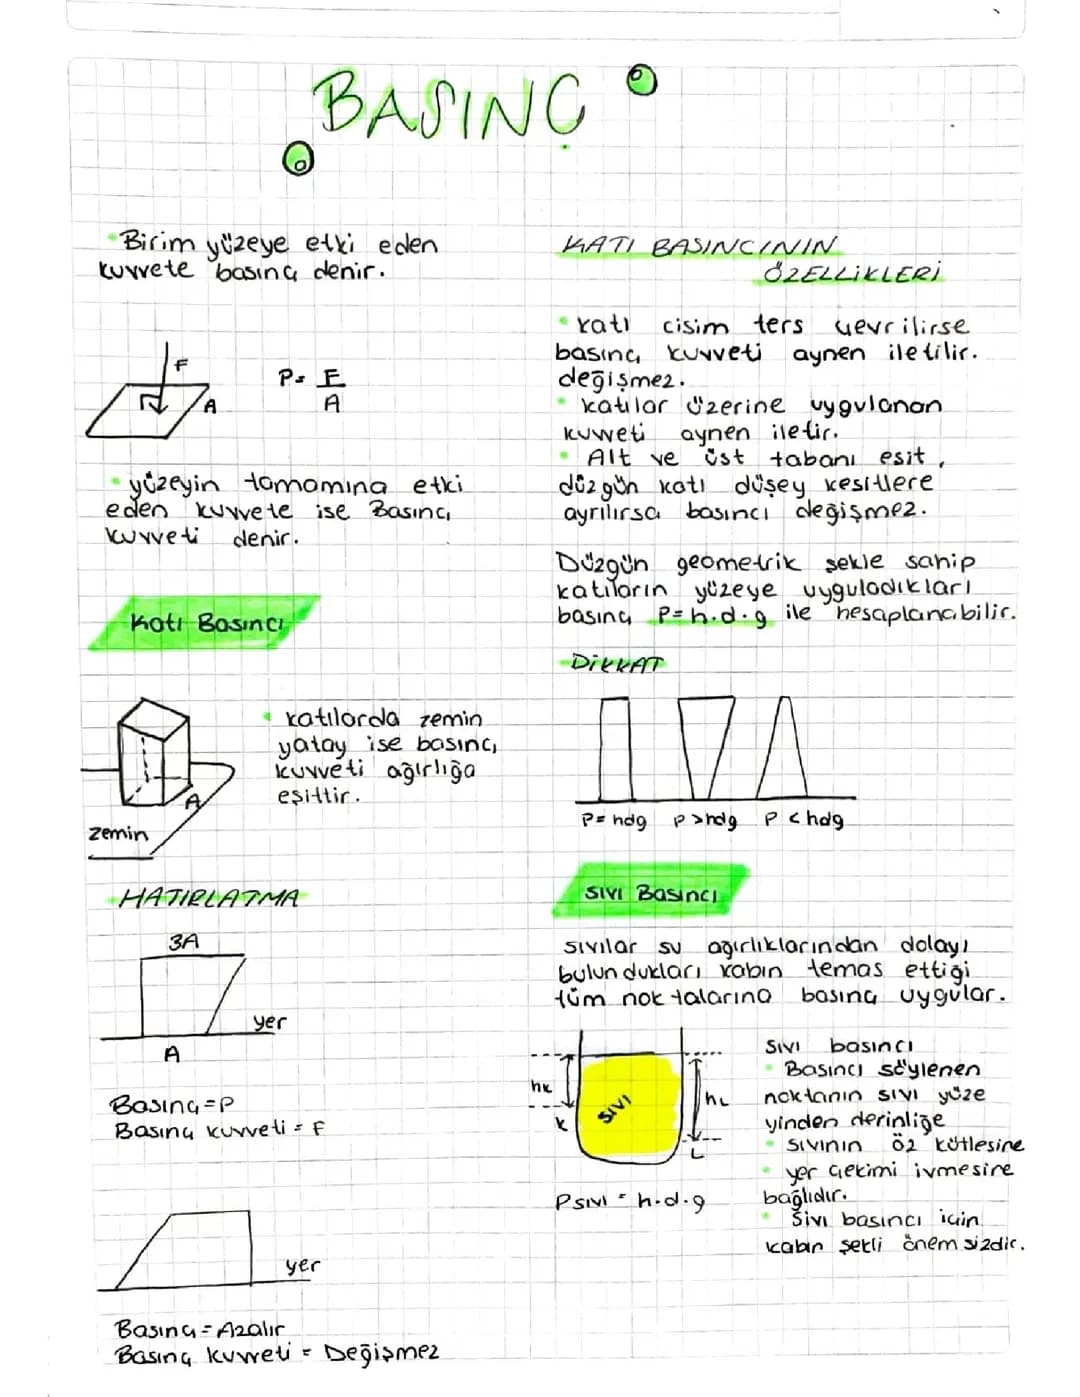 BASINÇ
Birim yüzeye etki eden
kuvvete basınç denir.
F
A
P = F
A
yüzeyin tamamına etki
eden kuvvete ise Basınç
kuvveti denir.
Katı Basıncı
katılarda zemin
yatay ise basınç
kuvveti ağırlığa
eşittir.
A
zemin
HATIRLATMA
3A
yer
A
Basınç = P
Basınç kuvveti = F
yer
Basınç = Azalır
Basınç kuvveti = Değişmez
KATI BASINCININ
ÖZELLİKLERİ
katı cisim ters çevrilirse
basınç kuvveti aynen iletilir.
değişmez.
katılar üzerine uygulanan
kuvveti aynen iletir.
Alt ve üst tabanı eşit,
düzgün katı düşey kesitlere
ayrılırsa basıncı değişmez.
Düzgün geometrik şekle sahip
katıların yüzeye uyguladıkları
basınç P=h.d.g ile hesaplanabilir.
DİKKAT
P = hdg P > hdg P < hdg
SIVI Basıncı
sıvılar su ağırlıklarından dolayı
bulundukları kabın temas ettiği
tüm noktalarına basınç uygular.
hK
K
SIVI
hL
L
Psıvı = h.d.g
SIVI basıncı
Basıncı söylenen
noktanın sıvı yüze
yinden derinliğe
sıvının öz kütlesine
yer çekimi ivmesine
bağlıdır.
Sıvı basıncı için
kabın şekli önemsizdir.